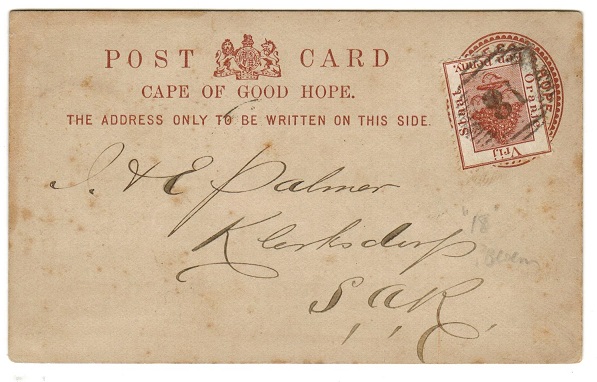 POST CARD
CAPE OF GOOD HOPE.
THE ADDRESS ONLY TO BE WRITTEN ON THIS SIDE.
HOPE
Een Penny.
Oranje
Vrij
Staat.
J & E Palmer
Klerksdorp
S. A. R.
"18"